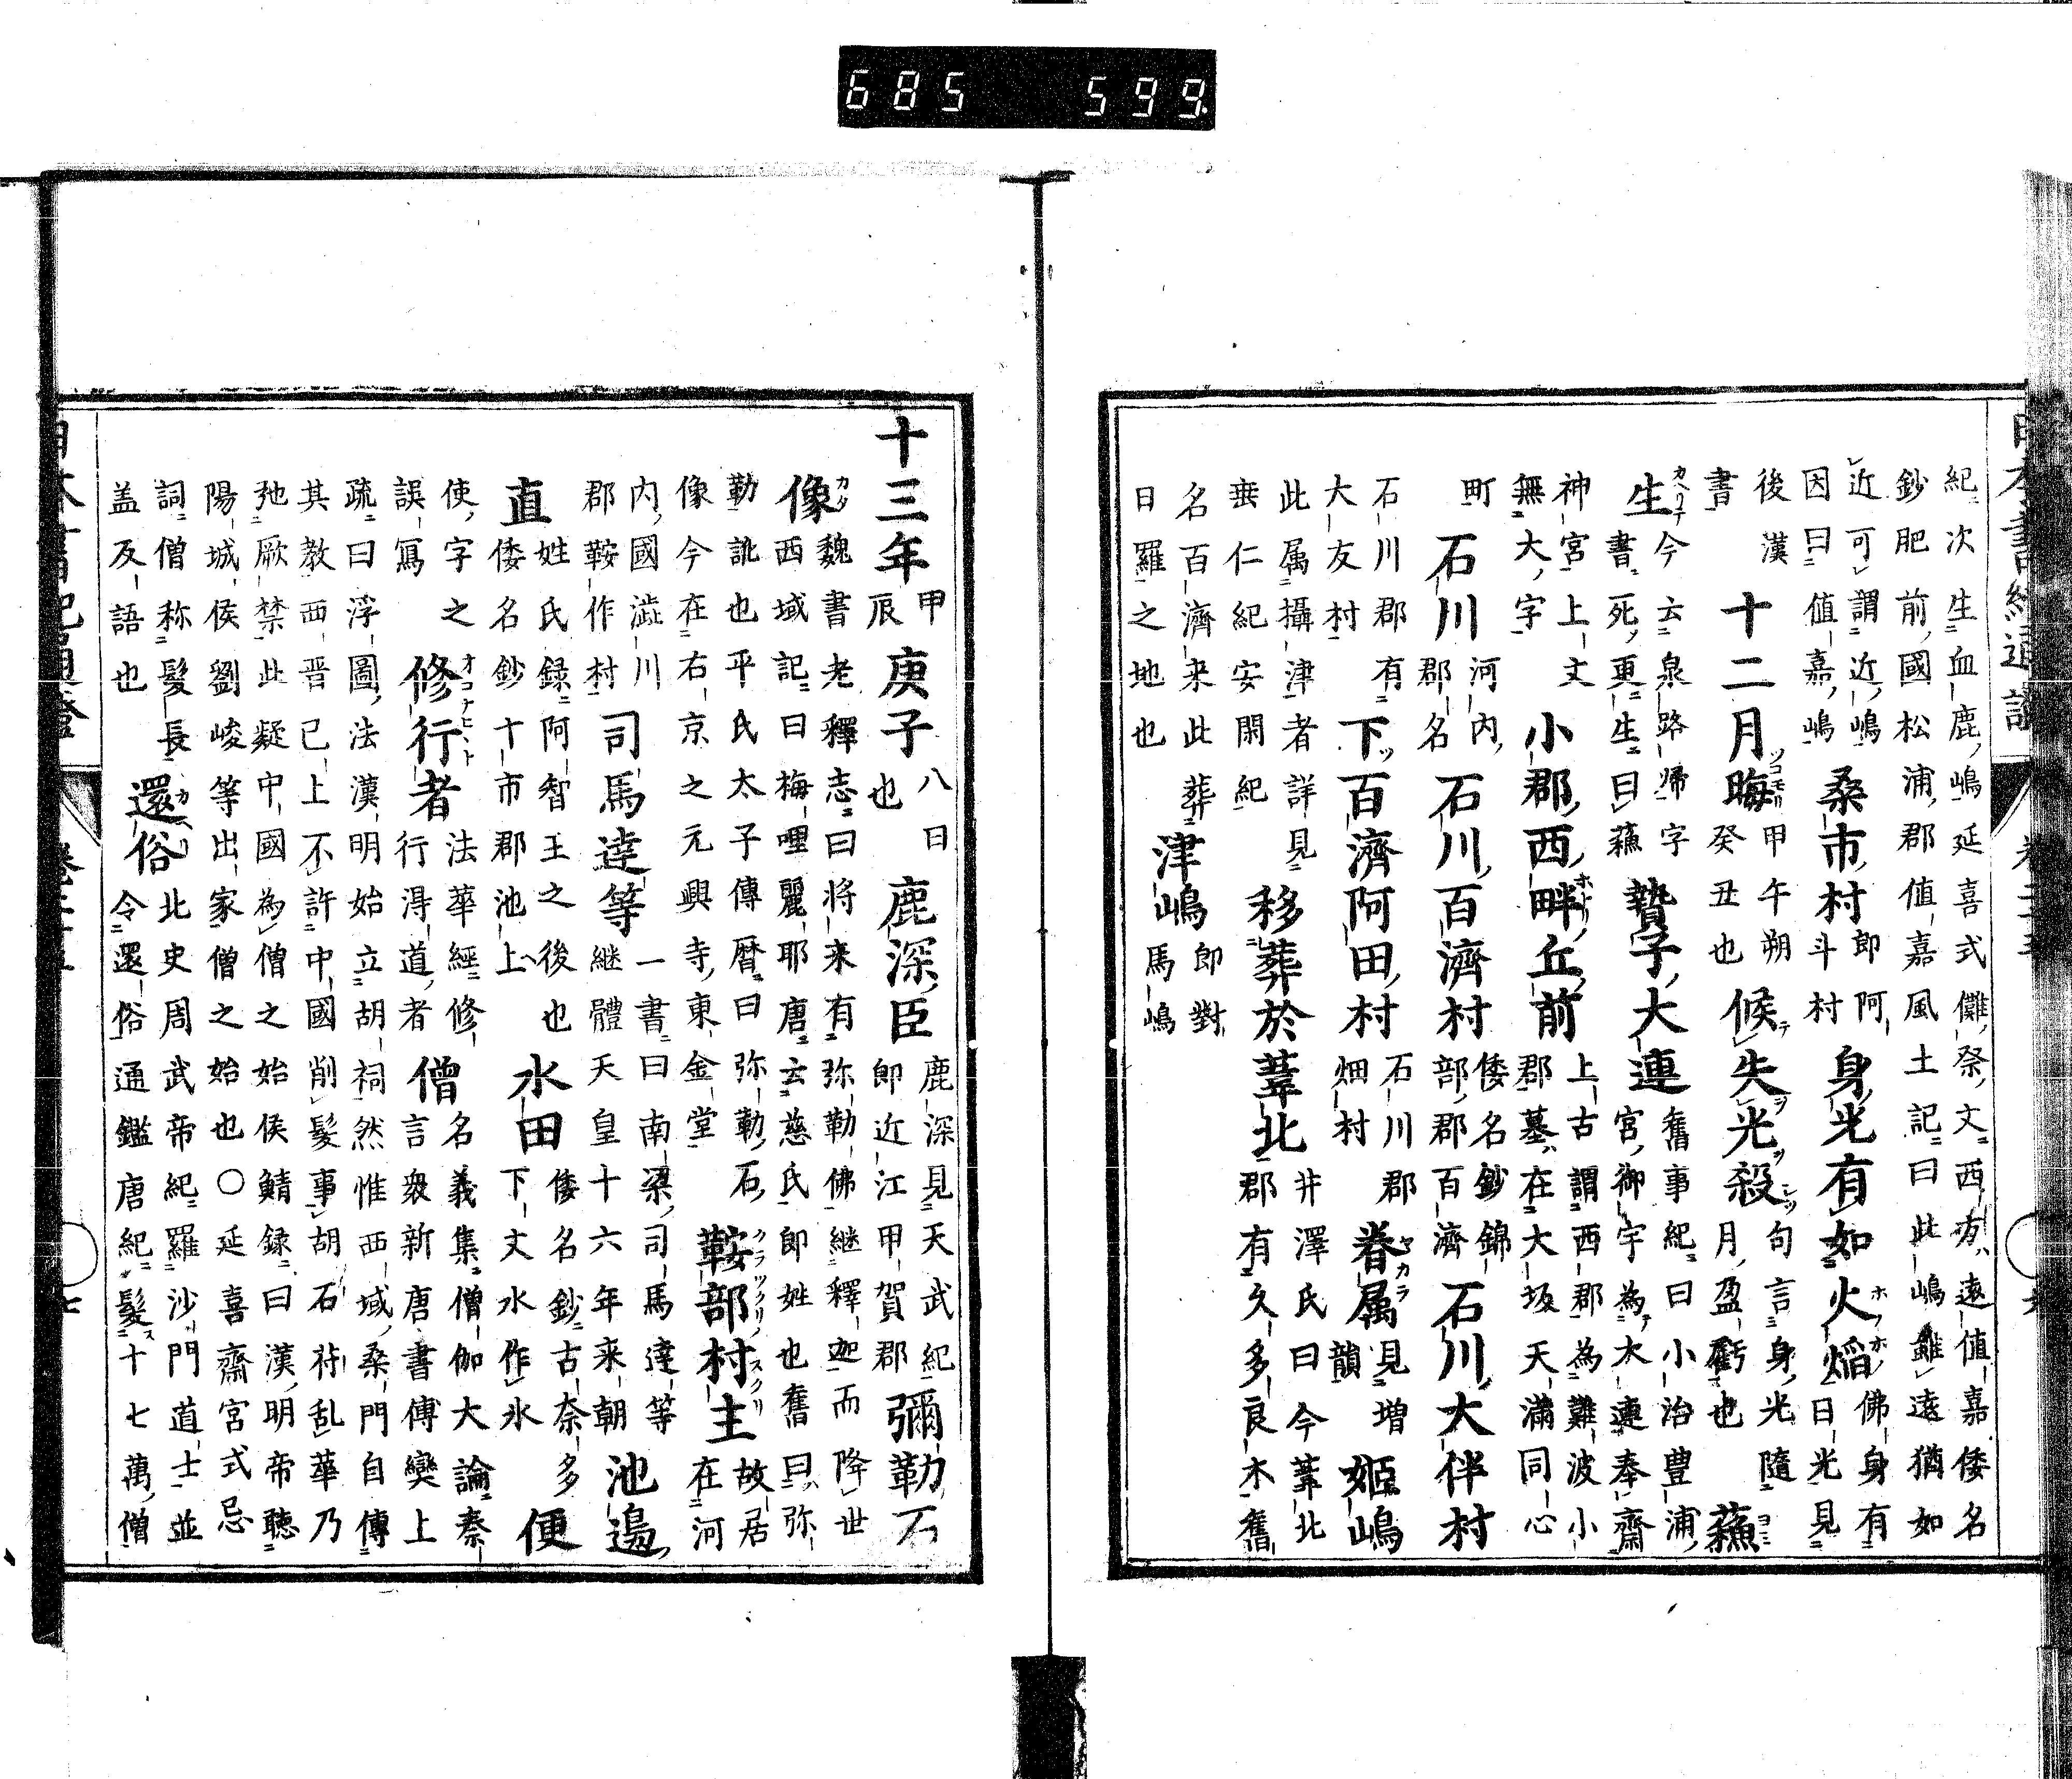 685 599
紀次生血鹿嶋延喜式儺祭文西方遠値嘉倭名
鈔肥前國松浦郡値嘉風土記曰此嶋雖遠猶如
近可謂近嶋
因曰値嘉嶋
桑市村
即阿
斗村
身光有如火焰
佛身有
日光見
後漢
書
十二月晦
甲午朔
癸丑也
候失光殺
句言身光隨
月盈虧也
蘓
生
今云泉路帰字
書死更生曰蘓
贄子大連
舊事紀曰小治豊浦
宮御宇為大連奉齋
神宮上文
無大字
小郡西畔丘前
上古謂西郡為難波小
郡墓在大坂天滿同心
町
石川
河内
郡名
石川百濟村
倭名鈔錦
部郡百濟
石川大伴村
石川郡有
大友村
下百濟阿田村
石川郡
畑村
眷属
見増
韻
姬嶋
此属攝津者詳見
垂仁紀安閑紀
移葬於葦北
井澤氏曰今葦北
郡有久多良木舊
名百濟来此葬
日羅之地也
津嶋
即對
馬嶋
十三年
甲
辰
庚子
八日
也
鹿深臣
鹿深見天武紀
即近江甲賀郡
彌勒石
像
魏書老釋志曰将来有弥勒佛継釋迦而降世
西域記曰梅哩麗耶唐云慈氏即姓也舊曰弥
勒訛也平氏太子傳暦曰弥勒石
像今在右京之元興寺東金堂
鞍部村主
故居
在河
内國澁川
郡鞍作村
司馬達等
一書曰南梁司馬達等
継體天皇十六年来朝
池邉
直
姓氏録阿智王之後也
倭名鈔十市郡池上
水田
倭名鈔古奈多
下文水作氷
便
使字之
誤寫
修行者
法華經修
行得道者
僧
名義集僧伽大論秦
言衆新唐書傳奕上
疏曰浮圖法漢明始立胡祠然惟西域桑門自傳
其教西晋已上不許中國削髮事胡石苻乱華乃
弛厥禁此疑中國為僧之始侯鯖録曰漢明帝聴
陽城侯劉峻等出家僧之始也〇延喜齋宮式忌
詞僧称髮長
盖反語也
還俗
北史周武帝紀羅沙門道士並
令還俗通鑑唐紀髮十七萬僧